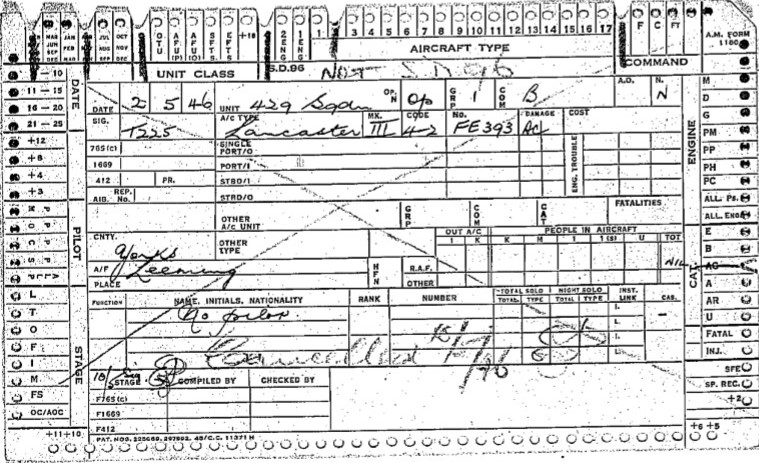 MAR JAN JUL OCT
JUN FEB AUG NOV
SEP MAR SEP DEC
DEC
OTU AFU (P) AFU (O) SFTS EFTS +18 2 ENG 1 ENG 1 3 4 5 6 7 8 9 10 11 12 13 14 15 16 17 F C FT
A.M. FORM 1180
AIRCRAFT TYPE
COMMAND
UNIT CLASS S.D.96 NOT S.D 96
1 — 10
11 — 15
16 — 20
21 — 25
+12
+8
+4
+3
DATE
PILOT
STAGE
DATE 2 5 46 UNIT 429 Sqdn OP. N Op GRP 1 COM B A.D. N. N
SIG. T225 A/C TYPE Lancaster MK. III CODE 4-2 No. FE393 DAMAGE AC COST
765 (C) SINGLE PORT/O
1669 PORT/I
412 PR. STBD/I
AID. REP. No. STBD/O
ENG. TROUBLE
OTHER A/C UNIT GRP COM CAT FATALITIES
OUT A/C PEOPLE IN AIRCRAFT
1 K K M 1 1 (S) U TOT
CNTY. Yorks OTHER TYPE
NIL
A/F Leeming HFN R.A.F.
PLACE OTHER
FUNCTION NAME, INITIALS, NATIONALITY RANK NUMBER TOTAL SOLO NIGHT SOLO INST. LINK CAS.
TOTAL TYPE TOTAL TYPE
No pilot L. —
Cancelled
STAGE COMPILED BY CHECKED BY
F765 (C)
F1669
F412
PAT. NOS.
ENGINE
CAT.
M
D
G
PM
PP
PH
PC
ALL. Ps.
ALL. ENG.
E
B
AC
A
AR
U
FATAL
INJ.
SFE
SP. REC.
+2
+6 +5
L
T
O
F
I
M
FS
OC/AOC
+11 +10